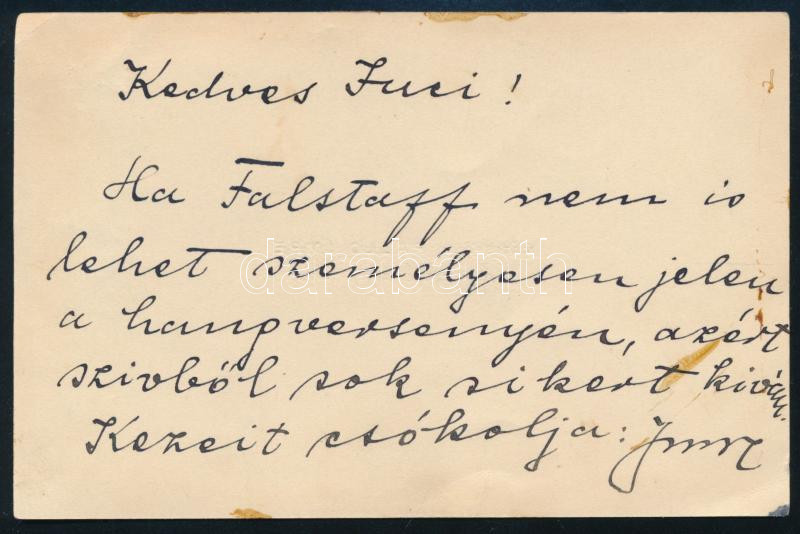 Kedves Juci!
Ha Falstaff nem is
lehet személyesen jelen
a hangversenyén, azért
szivből sok sikert kiván.
Kezeit csókolja: Imre
darabanth